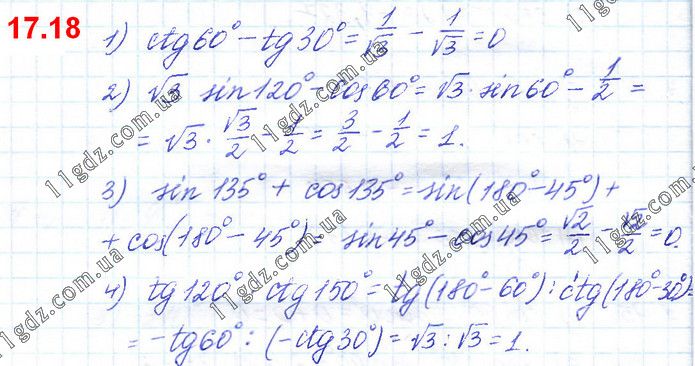 17.18
1) ctg60° - tg30° = 1/√3 - 1/√3 = 0
2) √3 sin120° - cos60° = √3 · sin60° - 1/2 =
= √3 · √3/2 - 1/2 = 3/2 - 1/2 = 1.
3) sin135° + cos135° = sin(180° - 45°) +
+ cos(180° - 45°) = sin45° - cos45° = √2/2 - √2/2 = 0.
4) tg120° : ctg150° = tg(180° - 60°) : ctg(180° - 30°) =
= -tg60° : (-ctg30°) = √3 : √3 = 1.
11gdz.com.ua
11gdz.com.ua
11gdz.com.ua
11gdz.com.ua
11gdz.com.ua
11gdz.com.ua